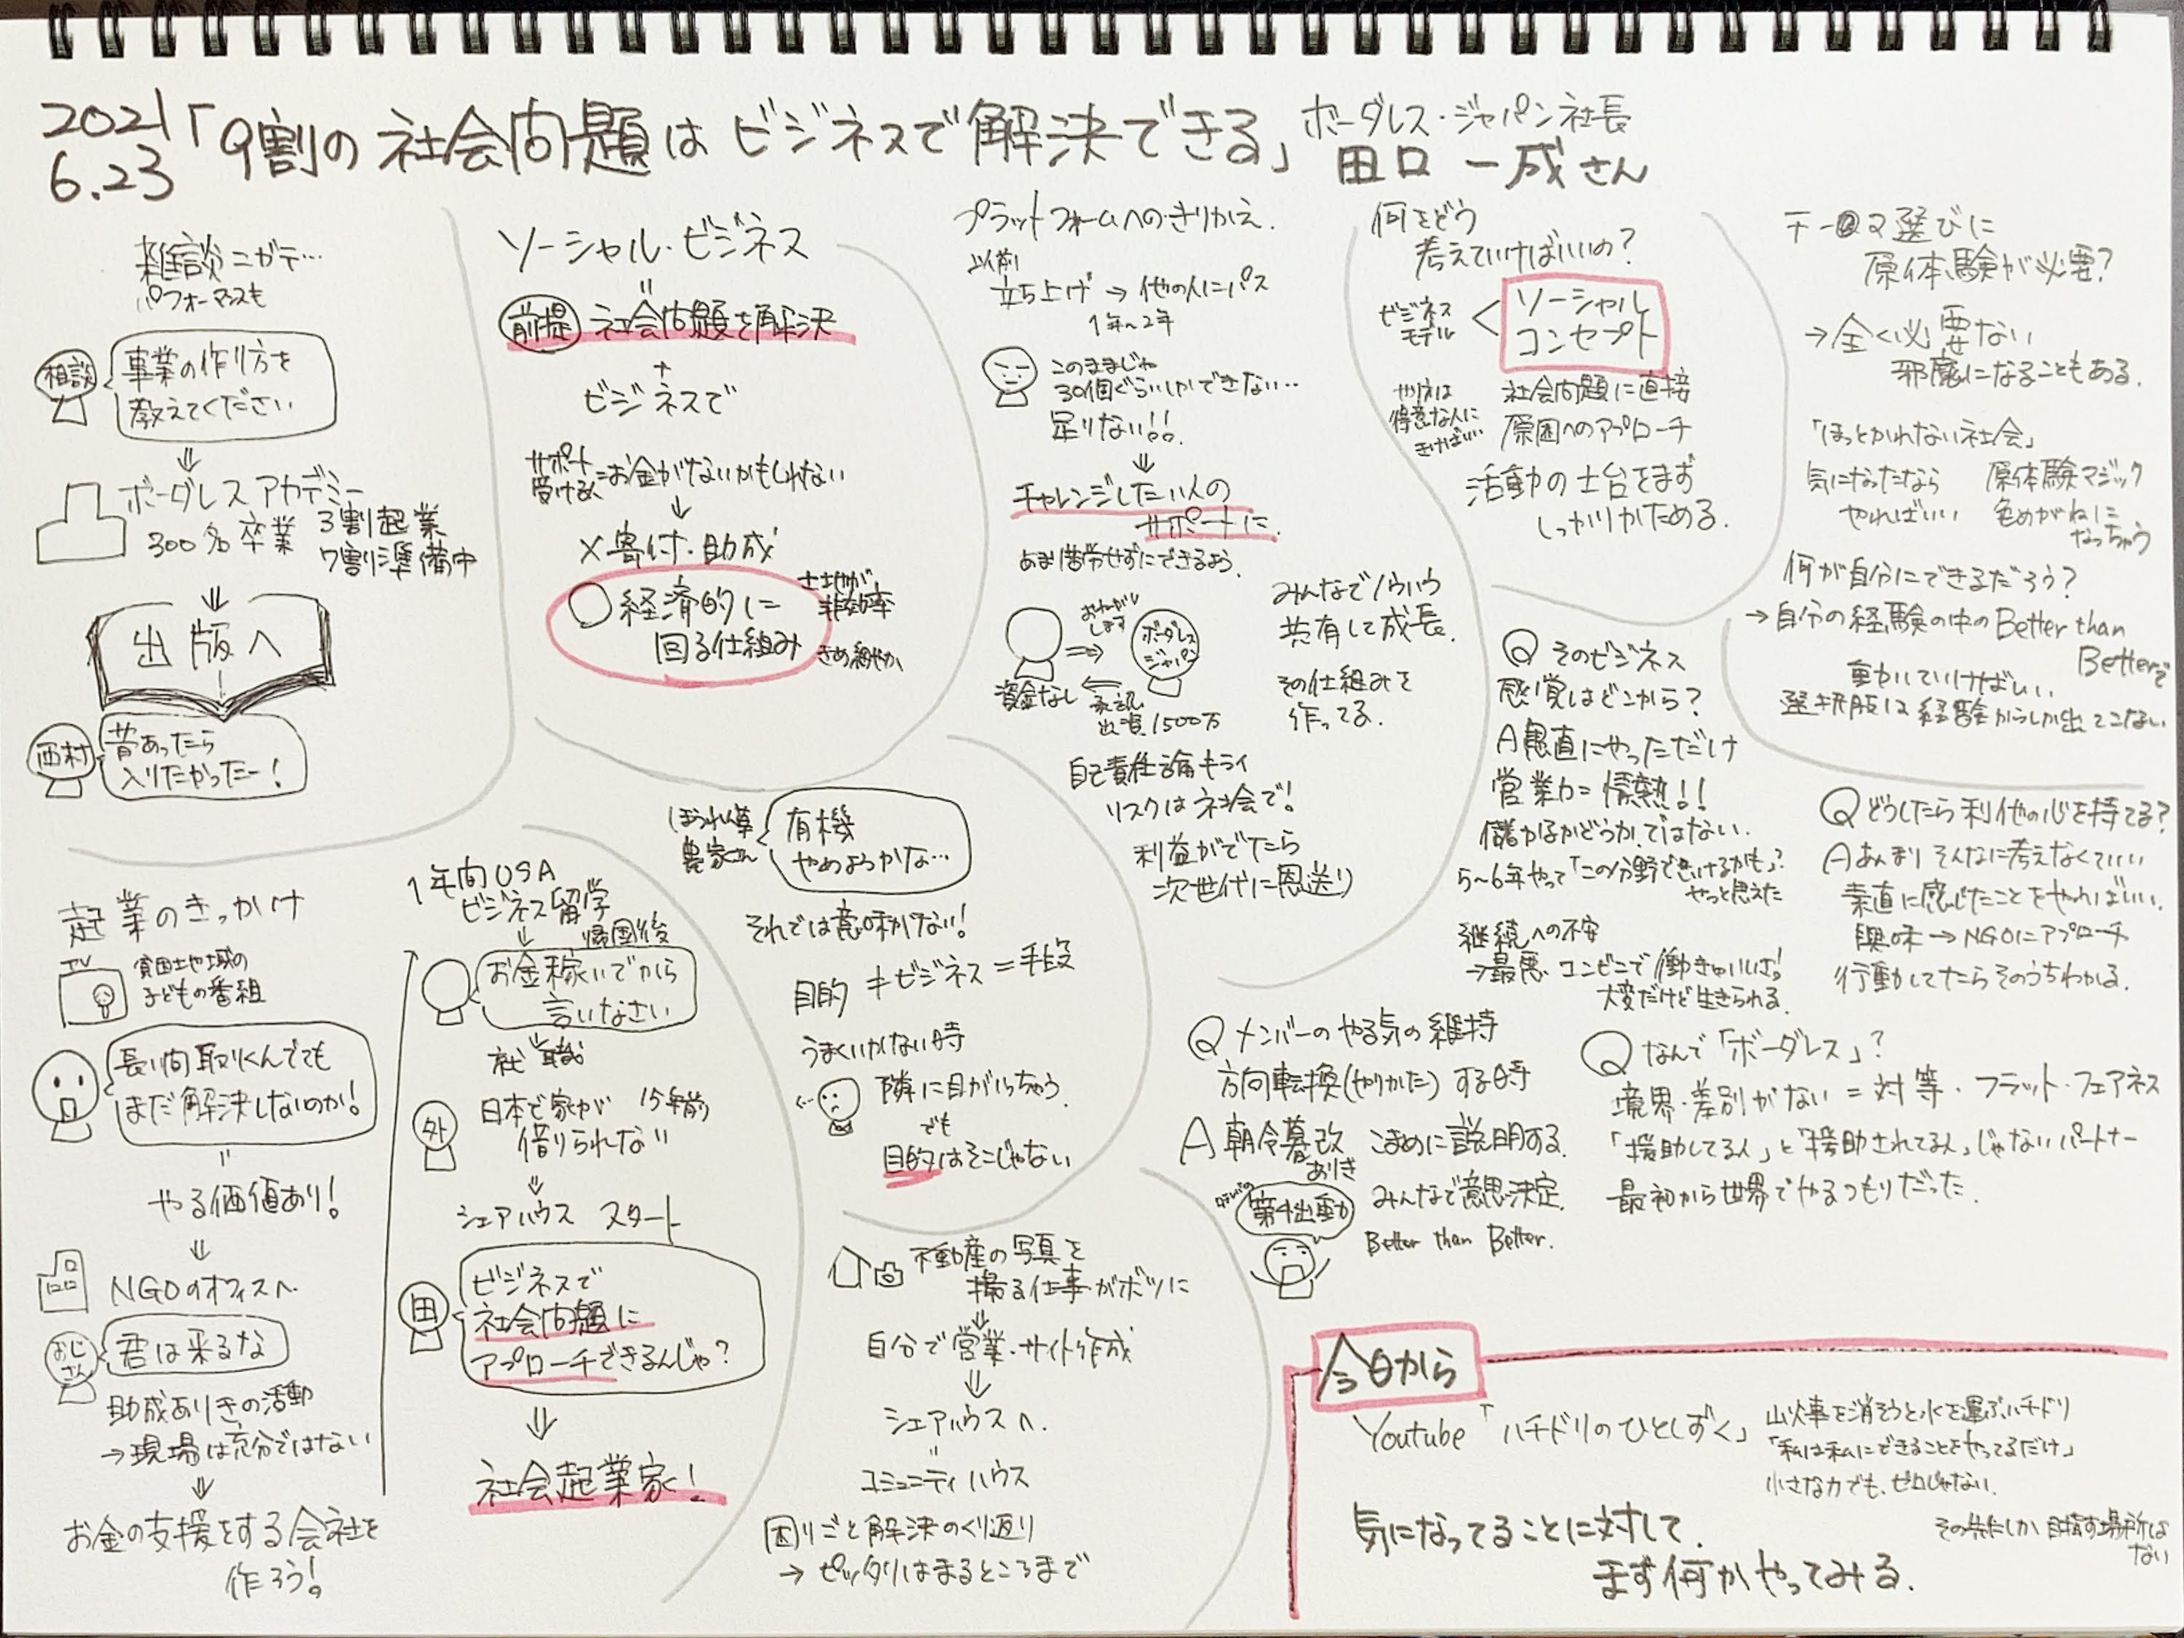 2021
6.23
「9割の社会問題はビジネスで解決できる」
ボーダレス・ジャパン社長
田口一成さん
雑談ニガテ…
パフォーマンスも
相談
事業の作り方を
教えてください
⇓
ボーダレスアカデミー
300名卒業
3割起業
7割準備中
⇓
出版へ
西村
昔あったら
入りたかったー!
起業のきっかけ
TV
貧困地域の
子どもの番組
長い間取りくんでても
まだ解決しないのか!
=
やる価値あり!
⇓
NGOのオフィスへ
おじさん
君は来るな
助成ありきの活動
→現場は充分ではない
⇓
お金の支援をする会社を
作ろう!
1年間USA
ビジネス留学
⇓
帰国後
お金稼いでから
言いなさい
就職
外
日本で家が
借りられない
15年前
⇓
シェアハウス スタート
田
ビジネスで
社会問題に
アプローチできるんじゃ?
⇓
社会起業家!
ソーシャル・ビジネス
=
前提 社会問題を解決
+
ビジネスで
サポート
受ける人=お金がないかもしれない
↓
×寄付・助成
○経済的に
回る仕組み
土地が
非効率
きめ細やか
ほうれん草
農家さん
有機
やめようかな…
それでは意味がない!
目的≠ビジネス=手段
うまくいかない時
隣に目がいっちゃう
でも
目的はそこじゃない
不動産の写真を
撮る仕事がボツに
⇓
自分で営業・サイト作成
⇓
シェアハウスへ
=
コミュニティハウス
困りごと解決のくり返り
→ピッタリはまるところまで
プラットフォームへのきりかえ
以前
立ち上げ→他の人にパス
1年~2年
このままじゃ
30個ぐらいしかできない‥
足りない!!
⇓
チャレンジしたい人の
サポートに
あまり苦労せずにできるよう
資金なし
おねがい
します
ボーダレス
ジャパン
承認
出資1500万
みんなでノウハウ
共有して成長
その仕組みを
作ってる
自己責任論キライ
リスクは社会で!
利益がでたら
次世代に恩送り
何をどう
考えていけばいいの?
ビジネス
モデル
<
ソーシャル
コンセプト
やり方は
得意な人に
きけばいい
社会問題に直接
原因へのアプローチ
活動の土台をまず
しっかりかためる
Q そのビジネス
感覚はどこから?
A 愚直にやっただけ
営業力=情熱!!
儲かるかどうかではない
5~6年やって「この分野でいけるかも」?
やっと思えた
継続への不安
→最悪コンビニで働きゃいいさ!
大変だけど生きられる
Q メンバーのやる気の維持
方向転換(やりかた)する時
A 朝令暮改
ありき
こまめに説明する
第4出動
みんなで意思決定
Better than Better.
テーマ選びに
原体験が必要?
→全く必要ない
邪魔になることもある
「ほっとかれない社会」
気になったなら
やればいい
原体験マジック
色めがねに
なっちゃう
何が自分にできるだろう?
→自分の経験の中のBetter than
Betterで
動いていけばいい
選択肢は経験からしか出てこない
Q どうしたら利他の心を持てる?
A あんまりそんなに考えなくていい
素直に感じたことをやればいい
興味→NGOにアプローチ
行動してたらそのうちわかる
Q なんで「ボーダレス」?
境界・差別がない=対等・フラット・フェアネス
「援助してる人」と「援助されてる人」じゃないパートナー
最初から世界でやるつもりだった
今日から
Youtube「ハチドリのひとしずく」
山火事を消そうと水を運ぶハチドリ
「私は私にできることをやってるだけ」
小さな力でも、ゼロじゃない
その先にしか目指す場所は
ない
気になってることに対して
まず何かやってみる